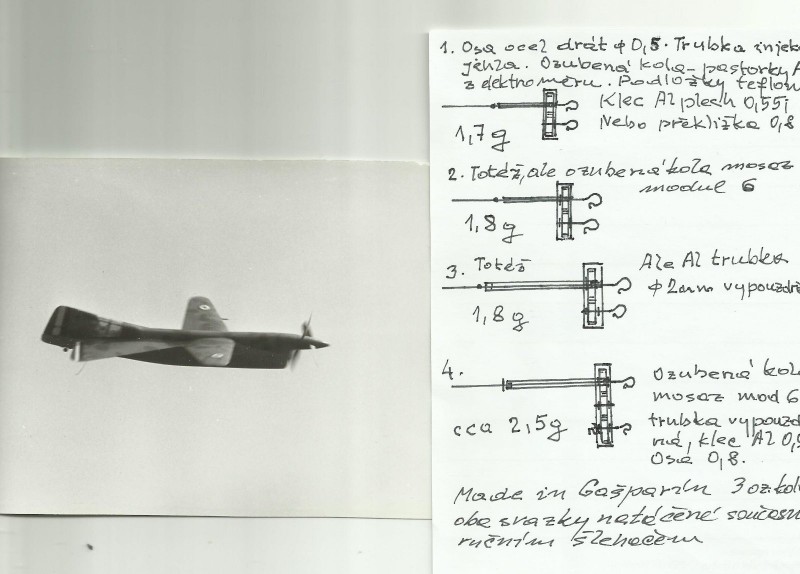 1. Osa ocel drát ϕ 0,5. Trubka injek
jehla. Ozubená kola- pastorky A
z elektroměru. Podložky teflon
Klec Al plech 0,55;
Nebo překližka 0,8
1,7g
2. Totéž, ale ozubená kola mosaz
modul 6
1,8g
3. Totéž
Ale Al trubka
ϕ 2mm vypouzdř
1,8g
4.
Ozubená kola
mosaz mod 6
cca 2,5g
trubka vypouzd
ná, klec Al 0,
Osa 0,8.
Made in Gašparín 3 oz.kol
oba svazky natáčené současn
ručním šlehačem